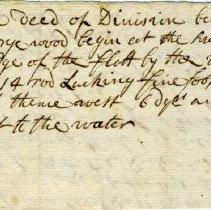 deed of Division be
wood begin at the
ge of the flatt by the
14 rod Lacking five foo
thence west 6 Dgs a
t to the water